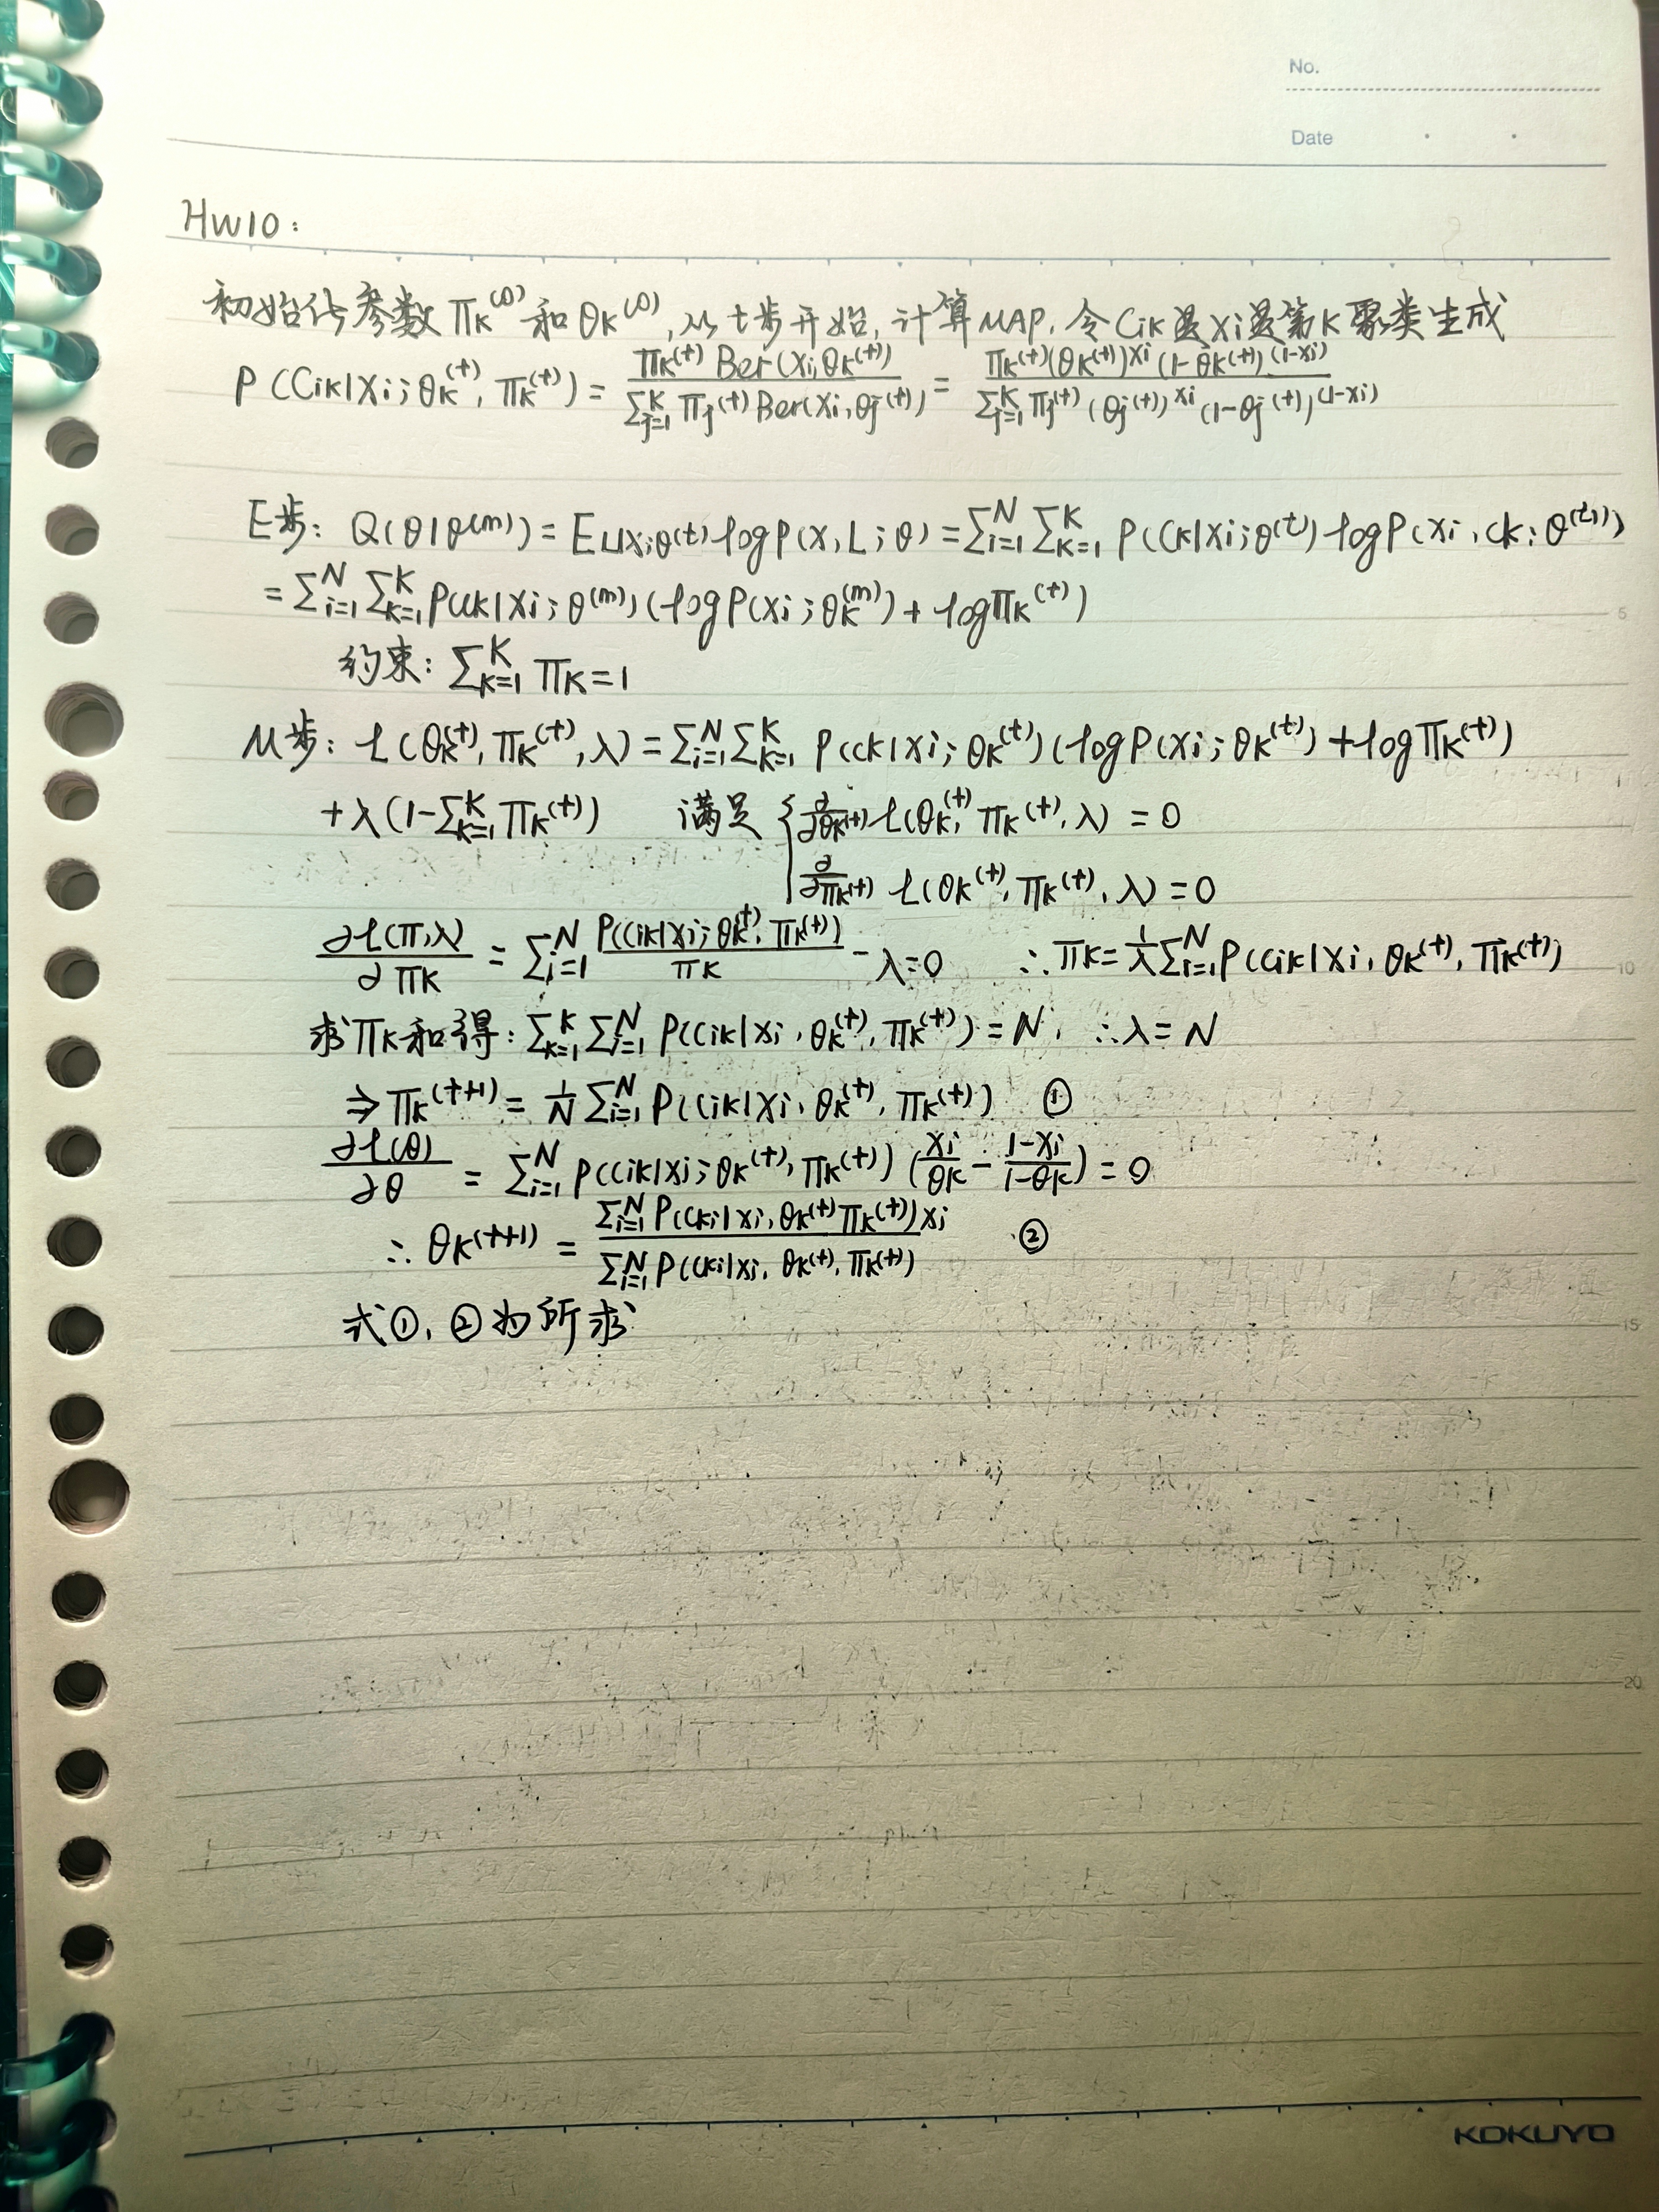 No.
Date
HW10:
初始化参数 πk^(0) 和 θk^(0), 从t步开始, 计算MAP. 令Cik是Xi是第K聚类生成
P(Cik|Xi; θk^(t), πk^(t)) = πk^(t) Ber(Xi, θk^(t)) / ∑_{j=1}^K πj^(t) Ber(Xi, θj^(t)) = πk^(t) (θk^(t))^Xi (1-θk^(t))^(1-Xi) / ∑_{j=1}^K πj^(t) (θj^(t))^Xi (1-θj^(t))^(1-Xi)
E步: Q(θ|θ^(m)) = E_{L|X;θ^(t)} log P(X, L; θ) = ∑_{i=1}^N ∑_{k=1}^K P(Ck|Xi; θ^(t)) log P(Xi, Ck; θ^(t)))
= ∑_{i=1}^N ∑_{k=1}^K P(Ck|Xi; θ^(m)) (log P(Xi; θk^(m)) + log πk^(t))
约束: ∑_{k=1}^K πk = 1
M步: L(θk^(t), πk^(t), λ) = ∑_{i=1}^N ∑_{k=1}^K P(Ck|Xi; θk^(t)) (log P(Xi; θk^(t)) + log πk^(t))
+ λ(1-∑_{k=1}^K πk^(t)) 满足 { ∂/∂θk^(t) L(θk^(t), πk^(t), λ) = 0
∂/∂πk^(t) L(θk^(t), πk^(t), λ) = 0
∂L(π,λ)/∂πk = ∑_{i=1}^N P(Cik|Xi; θk^(t), πk^(t))/πk - λ = 0 ∴ πk = 1/λ ∑_{i=1}^N P(Cik|Xi, θk^(t), πk^(t))
求πk和得: ∑_{k=1}^K ∑_{i=1}^N P(Cik|Xi, θk^(t), πk^(t)) = N, ∴ λ = N
⇒ πk^(t+1) = 1/N ∑_{i=1}^N P(Cik|Xi, θk^(t), πk^(t)) ①
∂L(θ)/∂θ = ∑_{i=1}^N P(Cik|Xi; θk^(t), πk^(t)) (Xi/θk - (1-Xi)/(1-θk)) = 0
∴ θk^(t+1) = ∑_{i=1}^N P(Cki|Xi, θk^(t) πk^(t)) Xi / ∑_{i=1}^N P(Cki|Xi, θk^(t), πk^(t)) ②
式①, ②为所求
5
10
15
20
KOKUYO